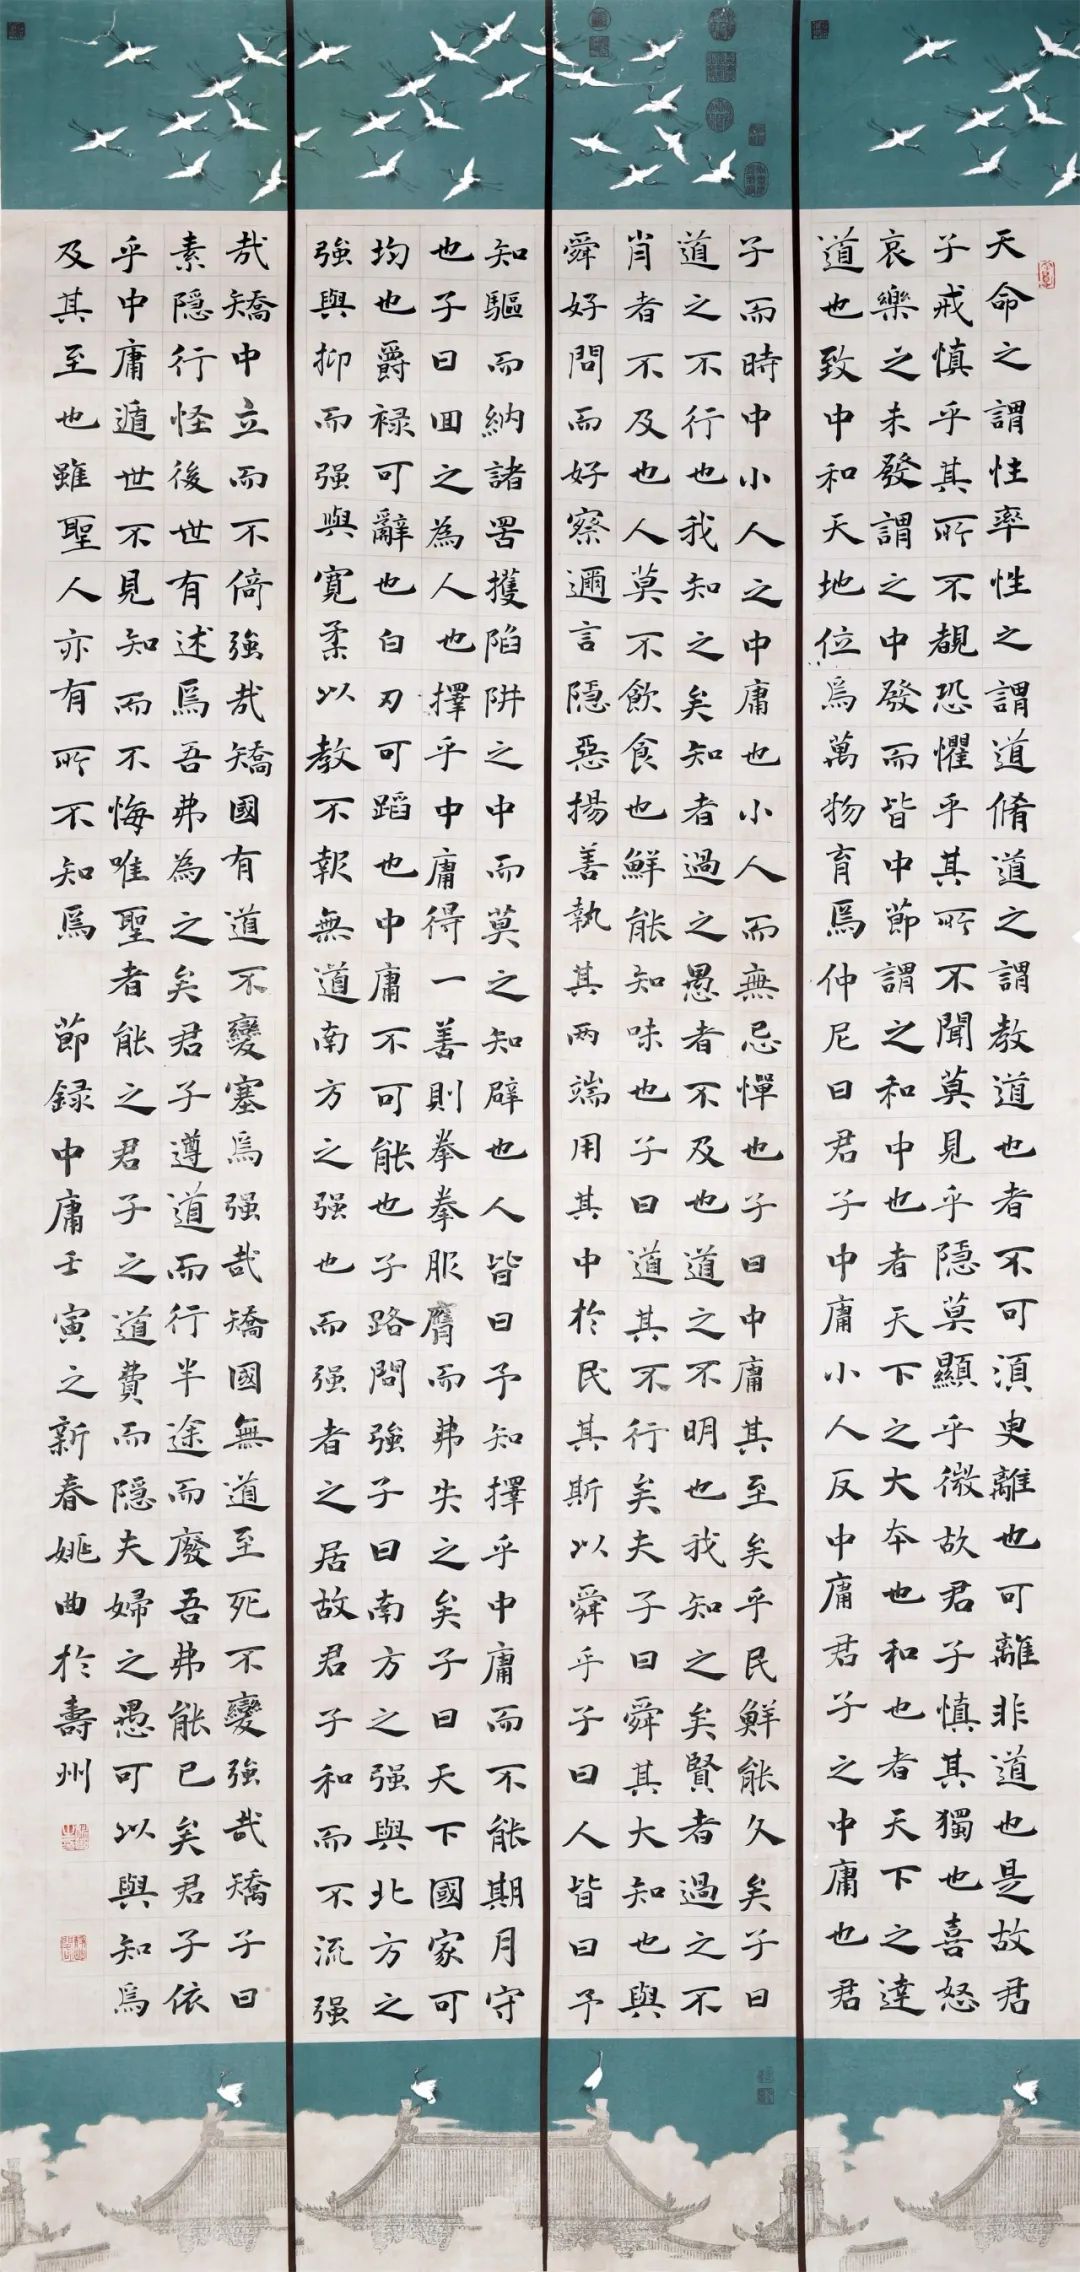 天命之謂性率性之謂道脩道之謂教道也者不可須臾離也可離非道也是故君
子戒慎乎其所不覩恐懼乎其所不聞莫見乎隱莫顯乎微故君子慎其獨也喜怒
哀樂之未發謂之中發而皆中節謂之和中也者天下之大本也和也者天下之達
道也致中和天地位焉萬物育焉仲尼曰君子中庸小人反中庸君子之中庸也君
子而時中小人之中庸也小人而無忌憚也子曰中庸其至矣乎民鮮能久矣子曰
道之不行也我知之矣知者過之愚者不及也道之不明也我知之矣賢者過之不
肖者不及也人莫不飲食也鮮能知味也子曰道其不行矣夫子曰舜其大知也與
舜好問而好察邇言隱惡揚善執其兩端用其中於民其斯以舜乎子曰人皆曰予
知驅而納諸罟擭陷阱之中而莫之知辟也人皆曰予知擇乎中庸而不能期月守
也子曰回之為人也擇乎中庸得一善則拳拳服膺而弗失之矣子曰天下國家可
均也爵祿可辭也白刃可蹈也中庸不可能也子路問強子曰南方之强與北方之
強與抑而强與寬柔以教不報無道南方之强也而强者之居故君子和而不流强
哉矯中立而不倚強哉矯國有道不變塞焉强哉矯國無道至死不變强哉矯子曰
素隱行怪後世有述焉吾弗為之矣君子遵道而行半途而廢吾弗能已矣君子依
乎中庸遁世不見知而不悔唯聖者能之君子之道費而隱夫婦之愚可以與知焉
及其至也雖聖人亦有所不知焉 節録中庸壬寅之新春姚曲於壽州